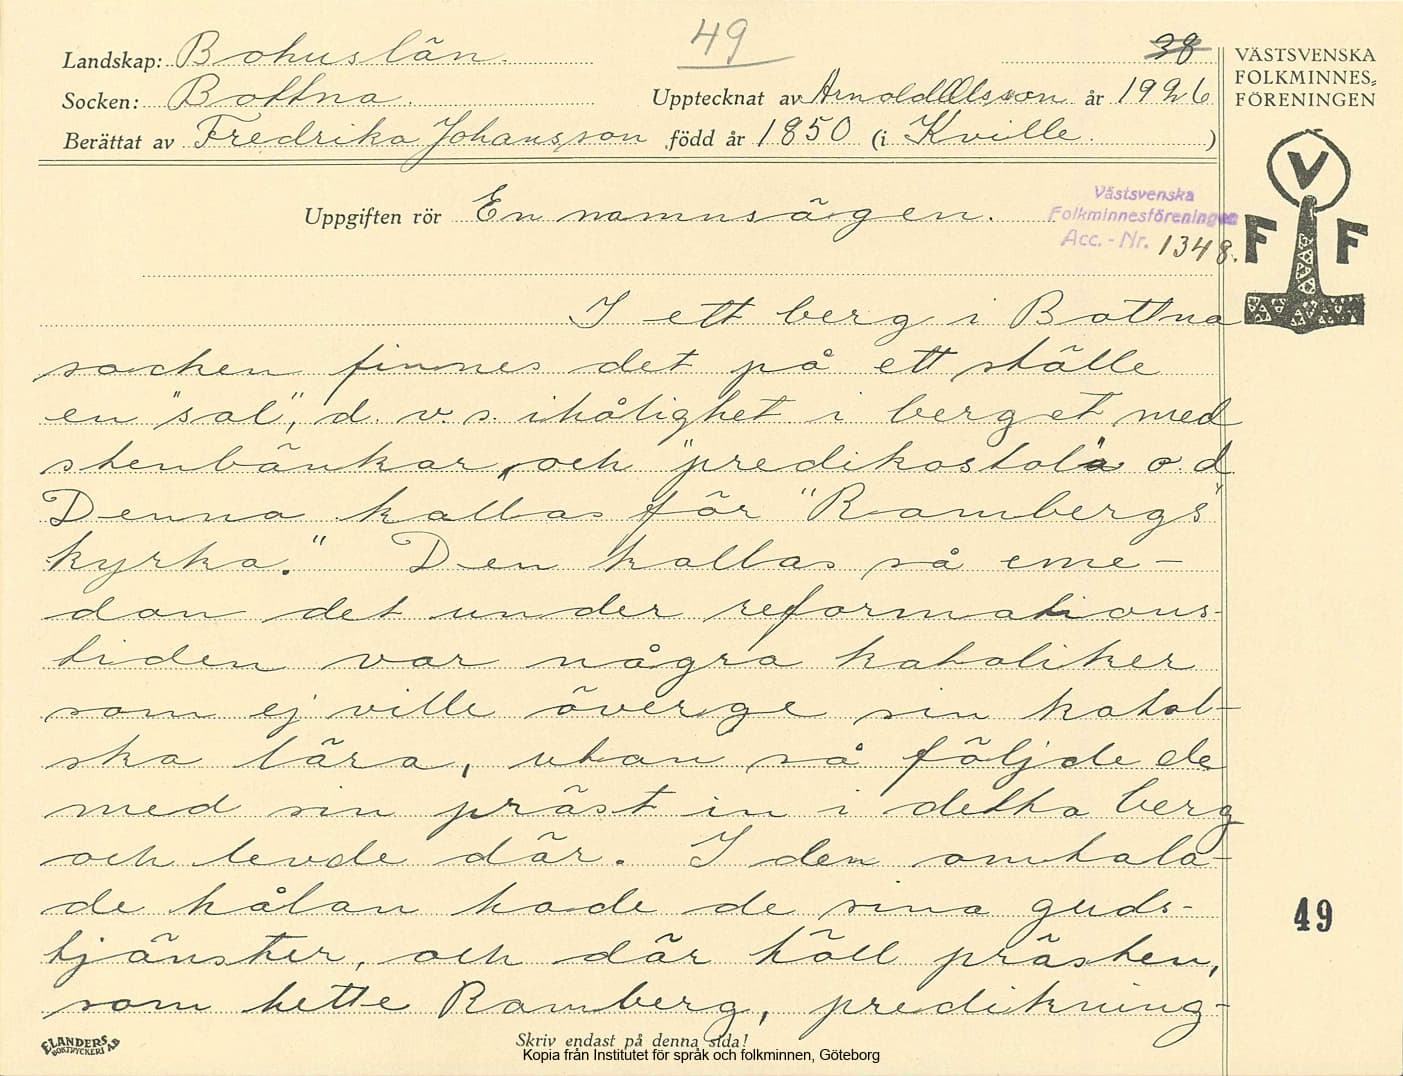 49
38
Landskap: Bohuslän.
Socken: Bottna.
Upptecknat av Arnold Olsson år 1926
Berättat av Fredrika Johansson född år 1850 (i Kville. )
VÄSTSVENSKA
FOLKMINNES-
FÖRENINGEN
V
F F
Uppgiften rör En namnsägen.
Västsvenska
Folkminnesföreningen
Acc. - Nr. 1348.
I ett berg i Bottna
socken finnes det på ett ställe
en "sal", d. v. s. ihålighet i berget med
stenbänkar, och "predikostol" o. d.
Denna kallas för "Rambergs
kyrka." Den kallas så eme-
dan det under reformations-
tiden var några katoliker
som ej ville överge sin katol-
ska lära, utan så följde de
med sin präst in i detta berg
och levde där. I den omtala-
de hålan hade de sina guds-
tjänster, och där höll prästen,
som hette Ramberg, predikning-
49
ELANDERS
BOKTRYCKERI AB
Skriv endast på denna sida!
Kopia från Institutet för språk och folkminnen, Göteborg